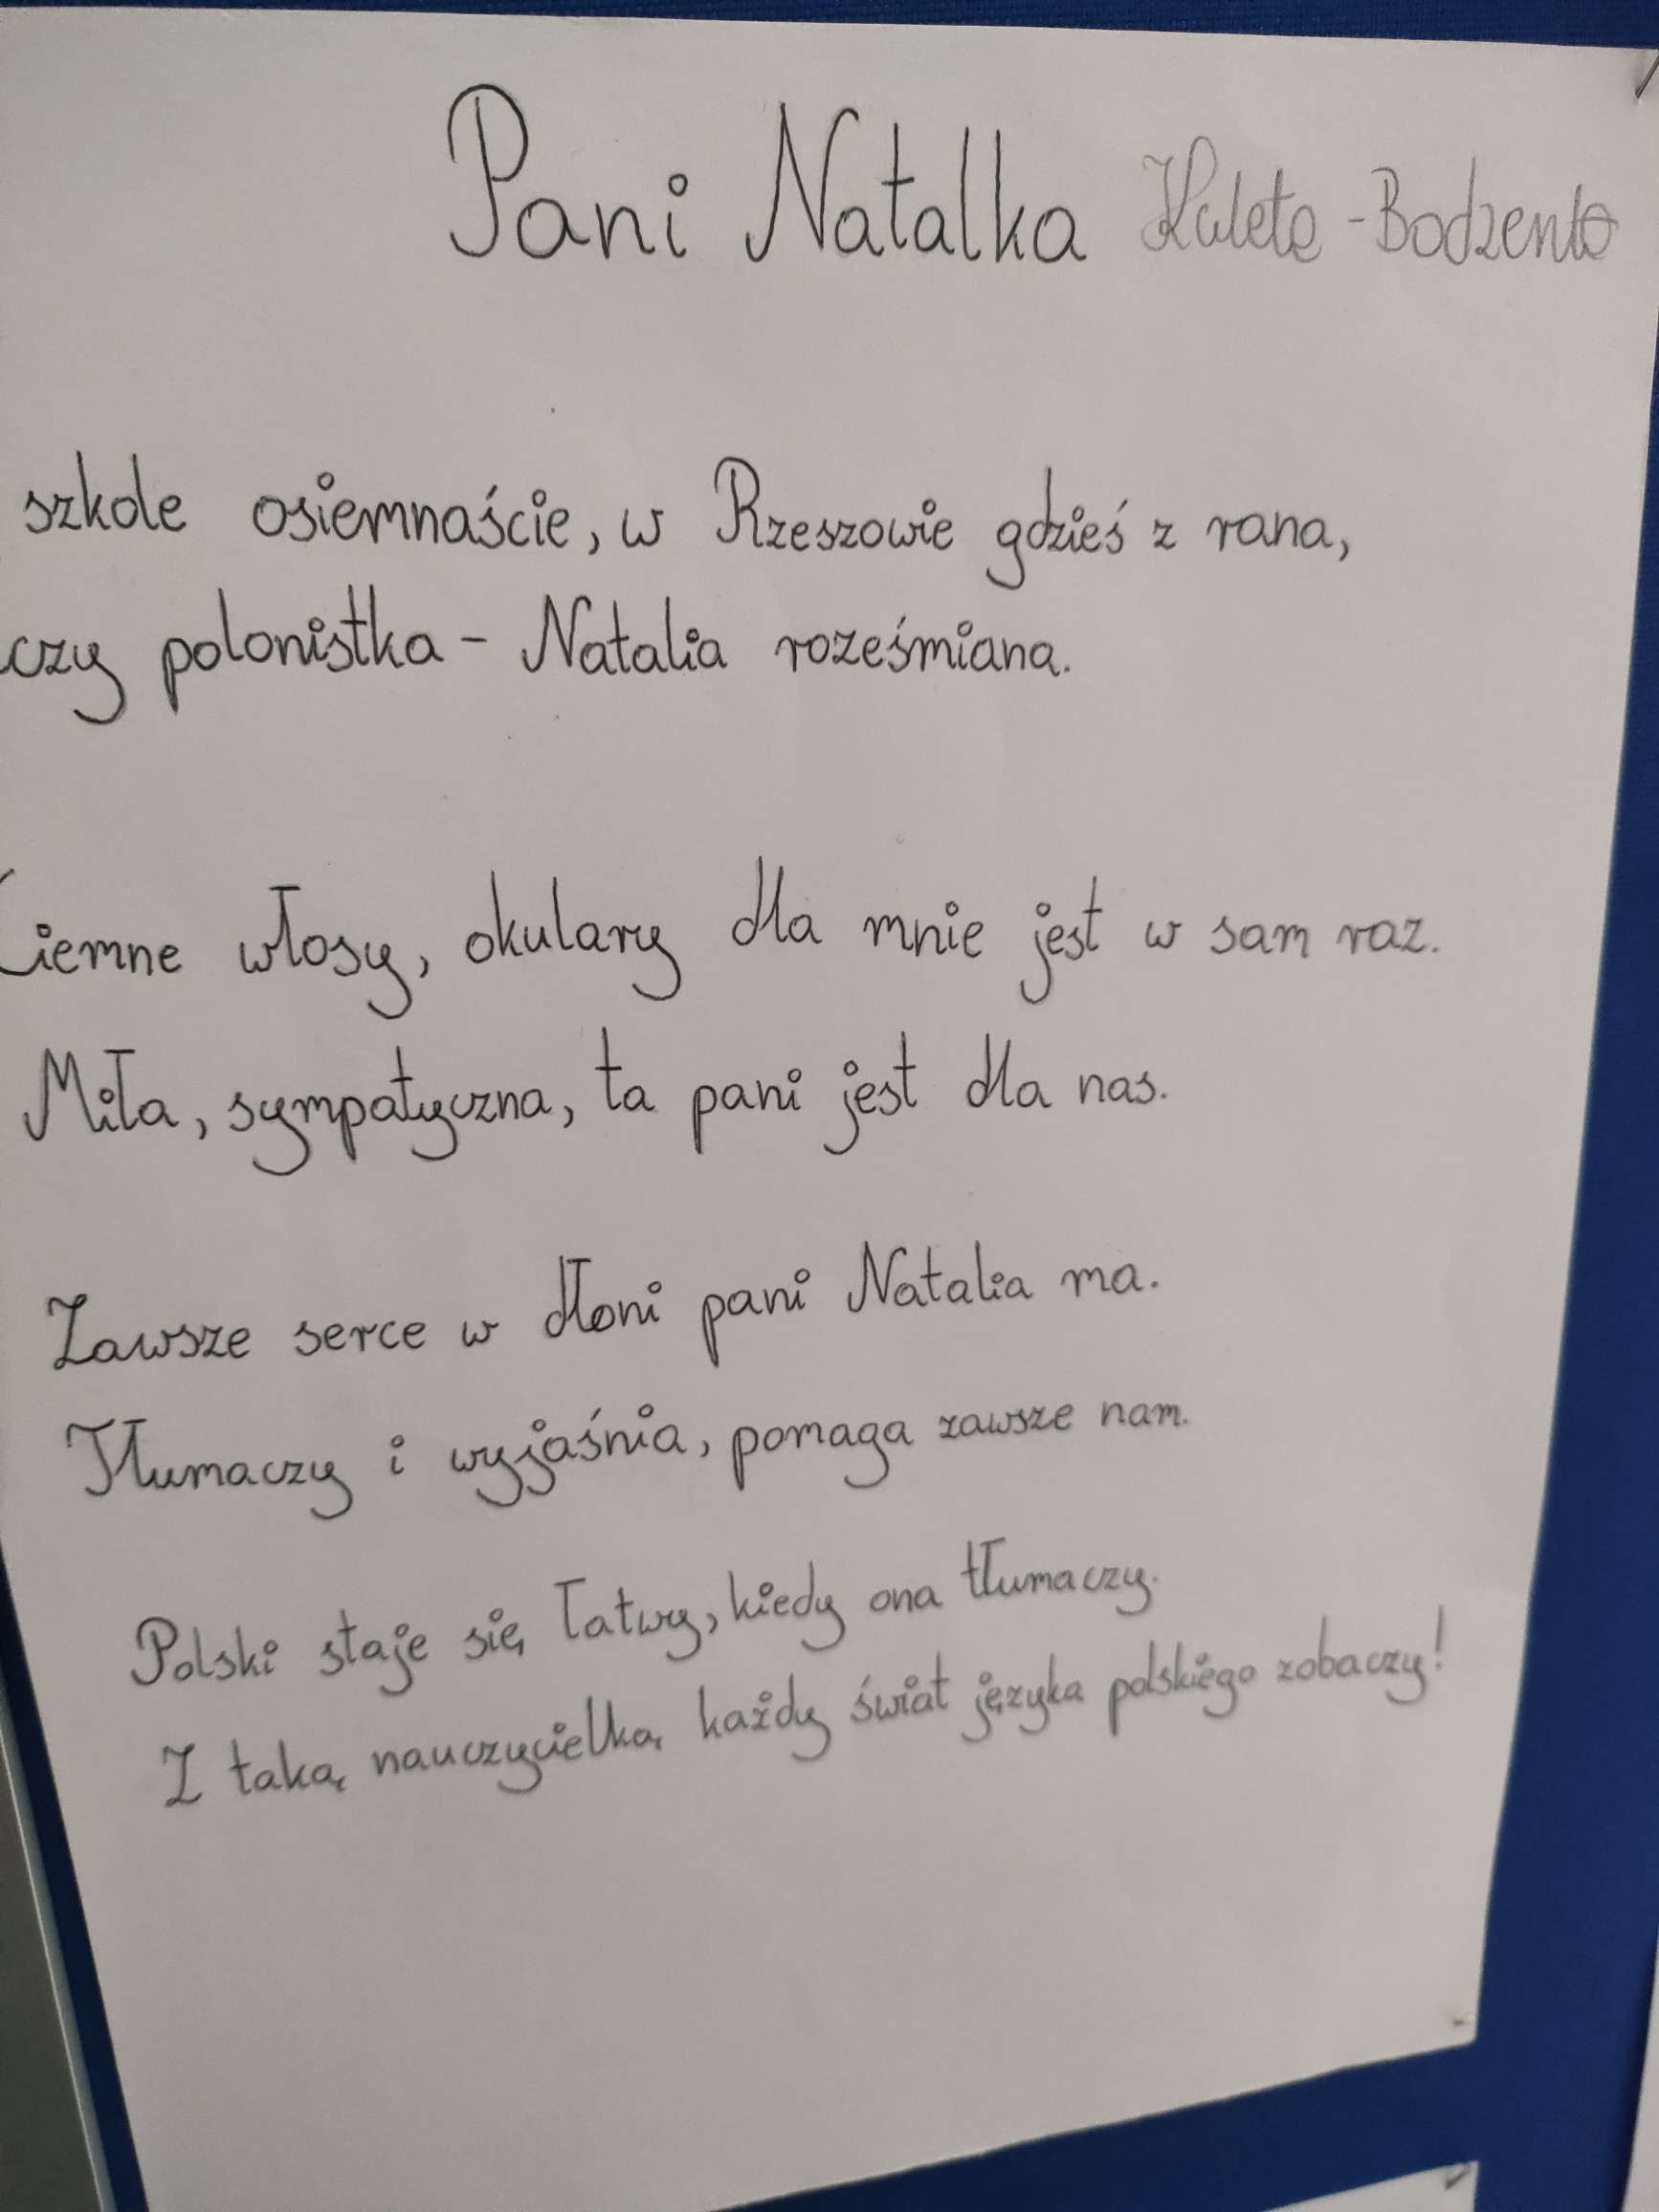 Pani Natalka Kaleta-Bodzenta
szkole osiemnaście, w Rzeszowie gdzieś z rana,
czy polonistka - Natalia roześmiana.
Ciemne włosy, okulary dla mnie jest w sam raz.
Miła, sympatyczna, ta pani jest dla nas.
Zawsze serce w dłoni pani Natalia ma.
Tłumaczy i wyjaśnia, pomaga zawsze nam.
Polski staje się łatwy, kiedy ona tłumaczy.
Z taką nauczycielką każdy świat języka polskiego zobaczy!